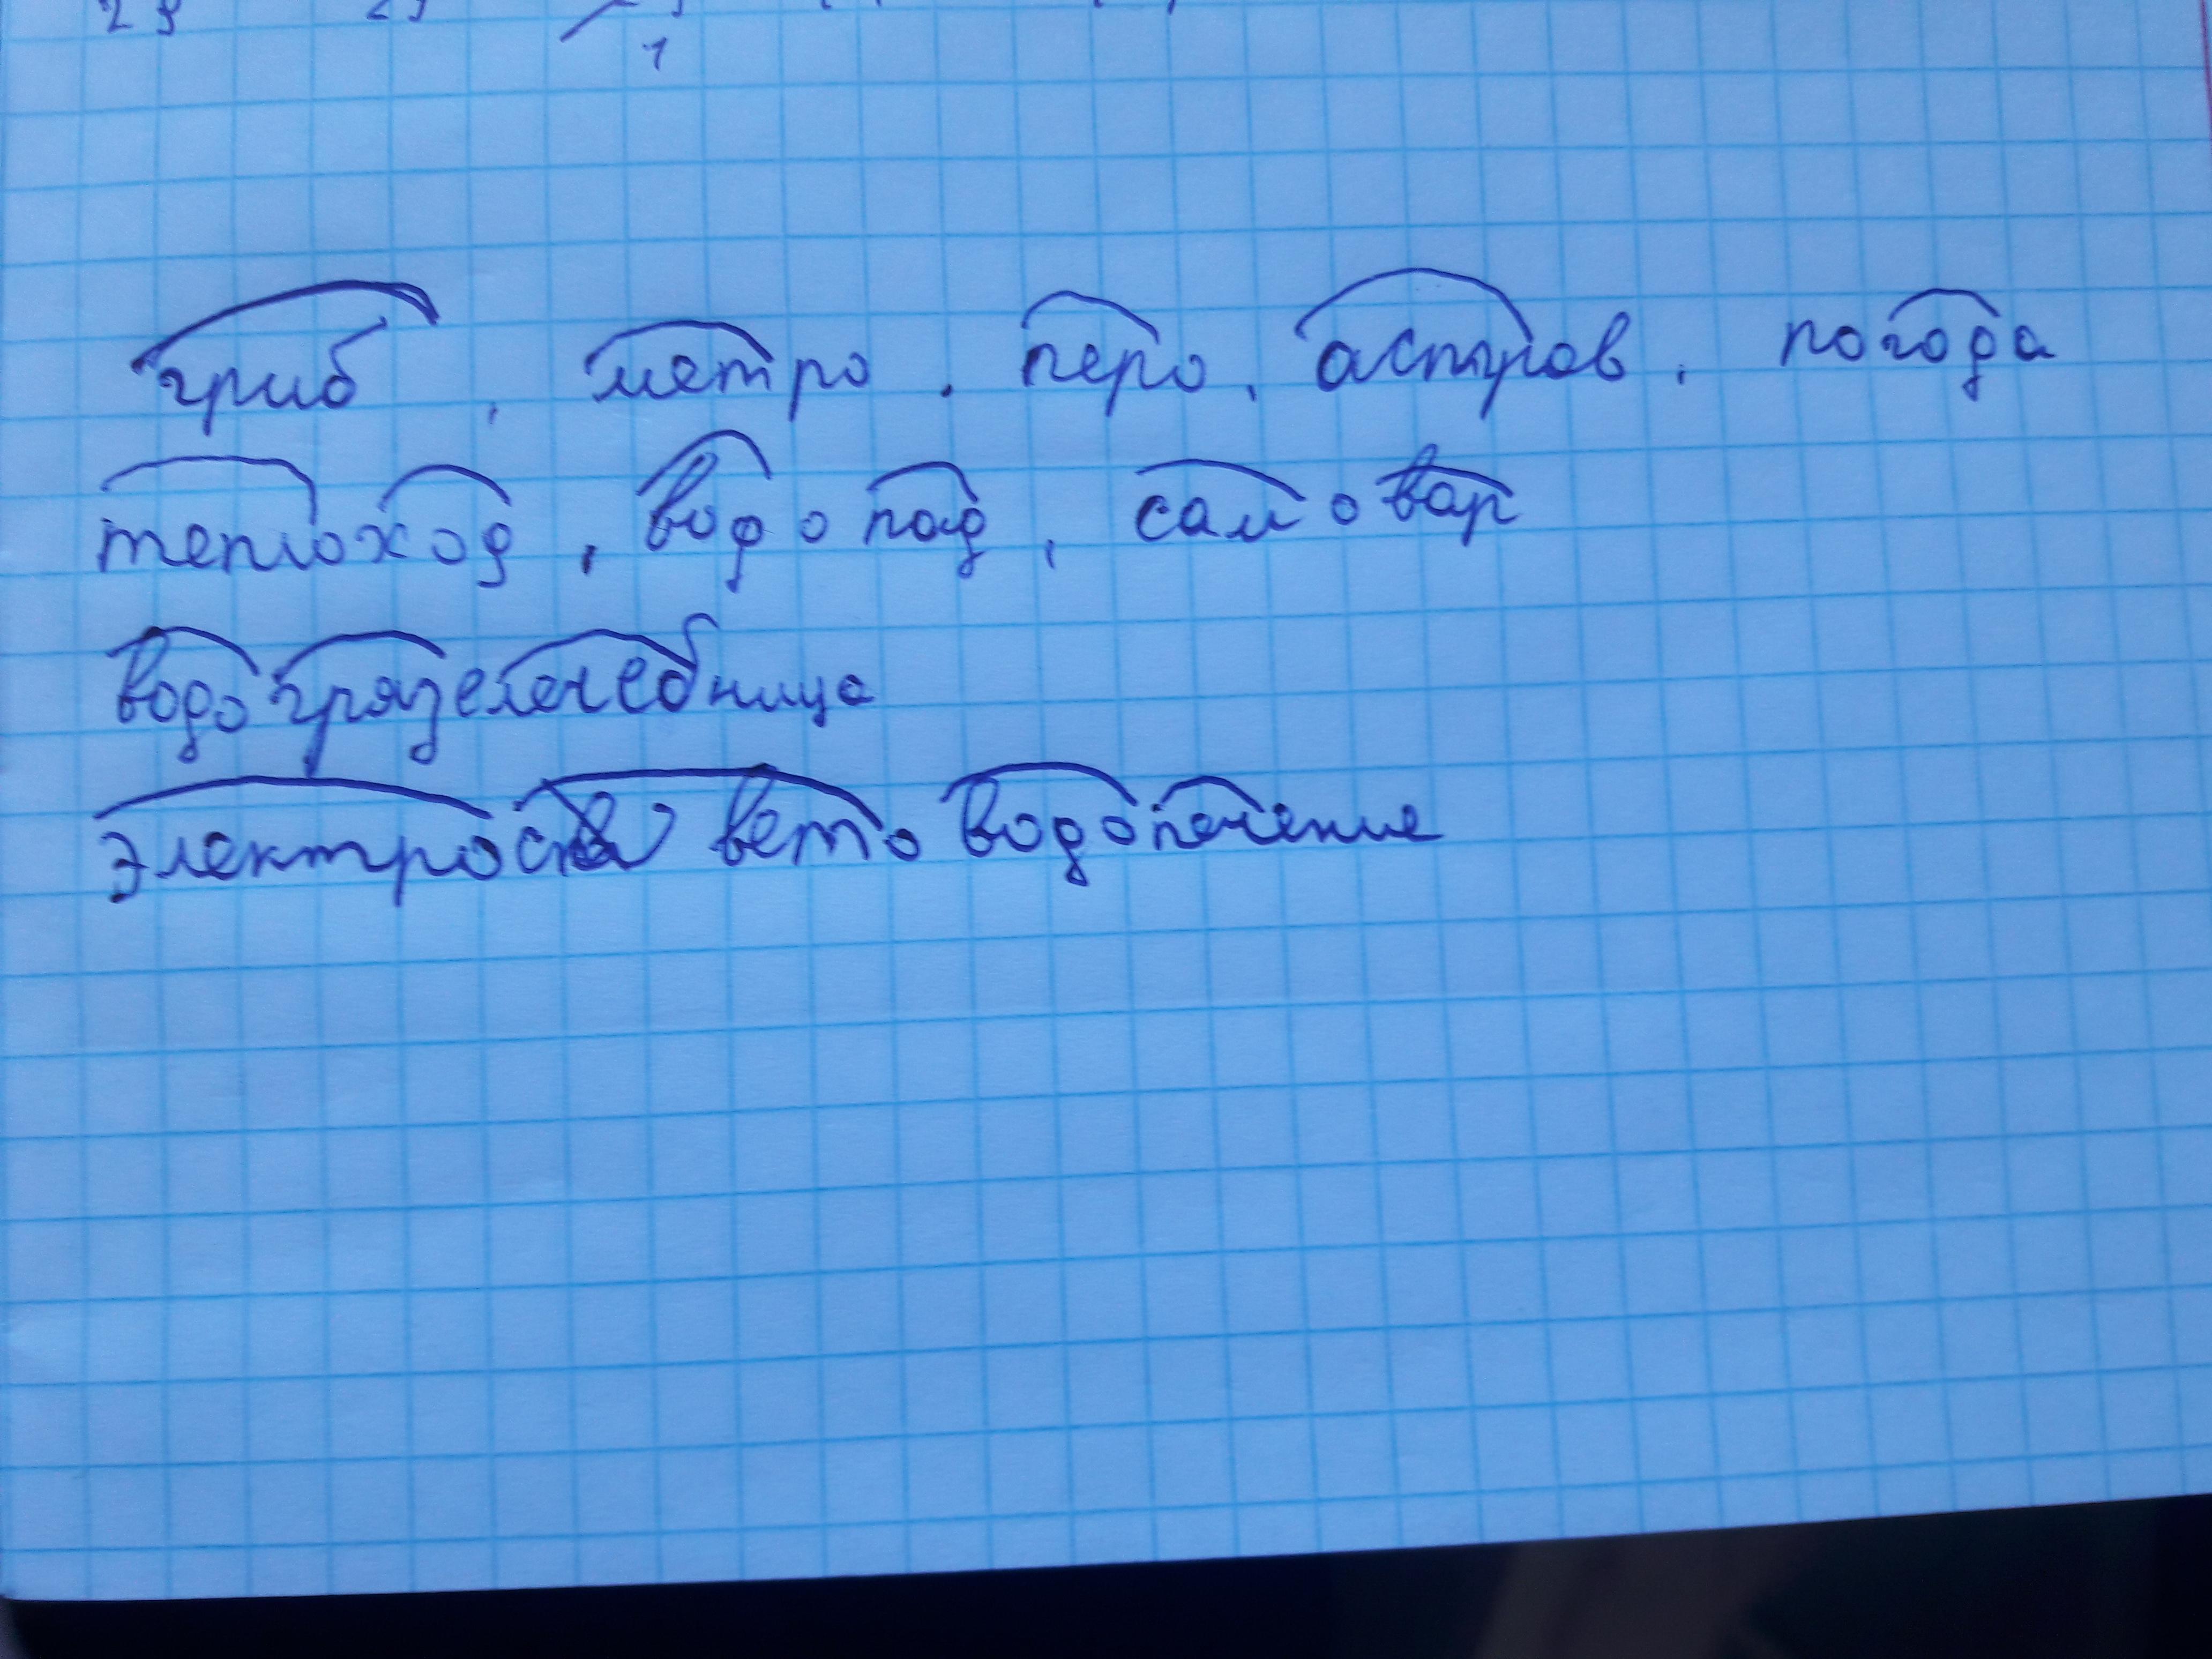 гриб, метро, перо, астров, погода
теплоход, водопад, самовар
водогрязелечебница
электросветоводолечение